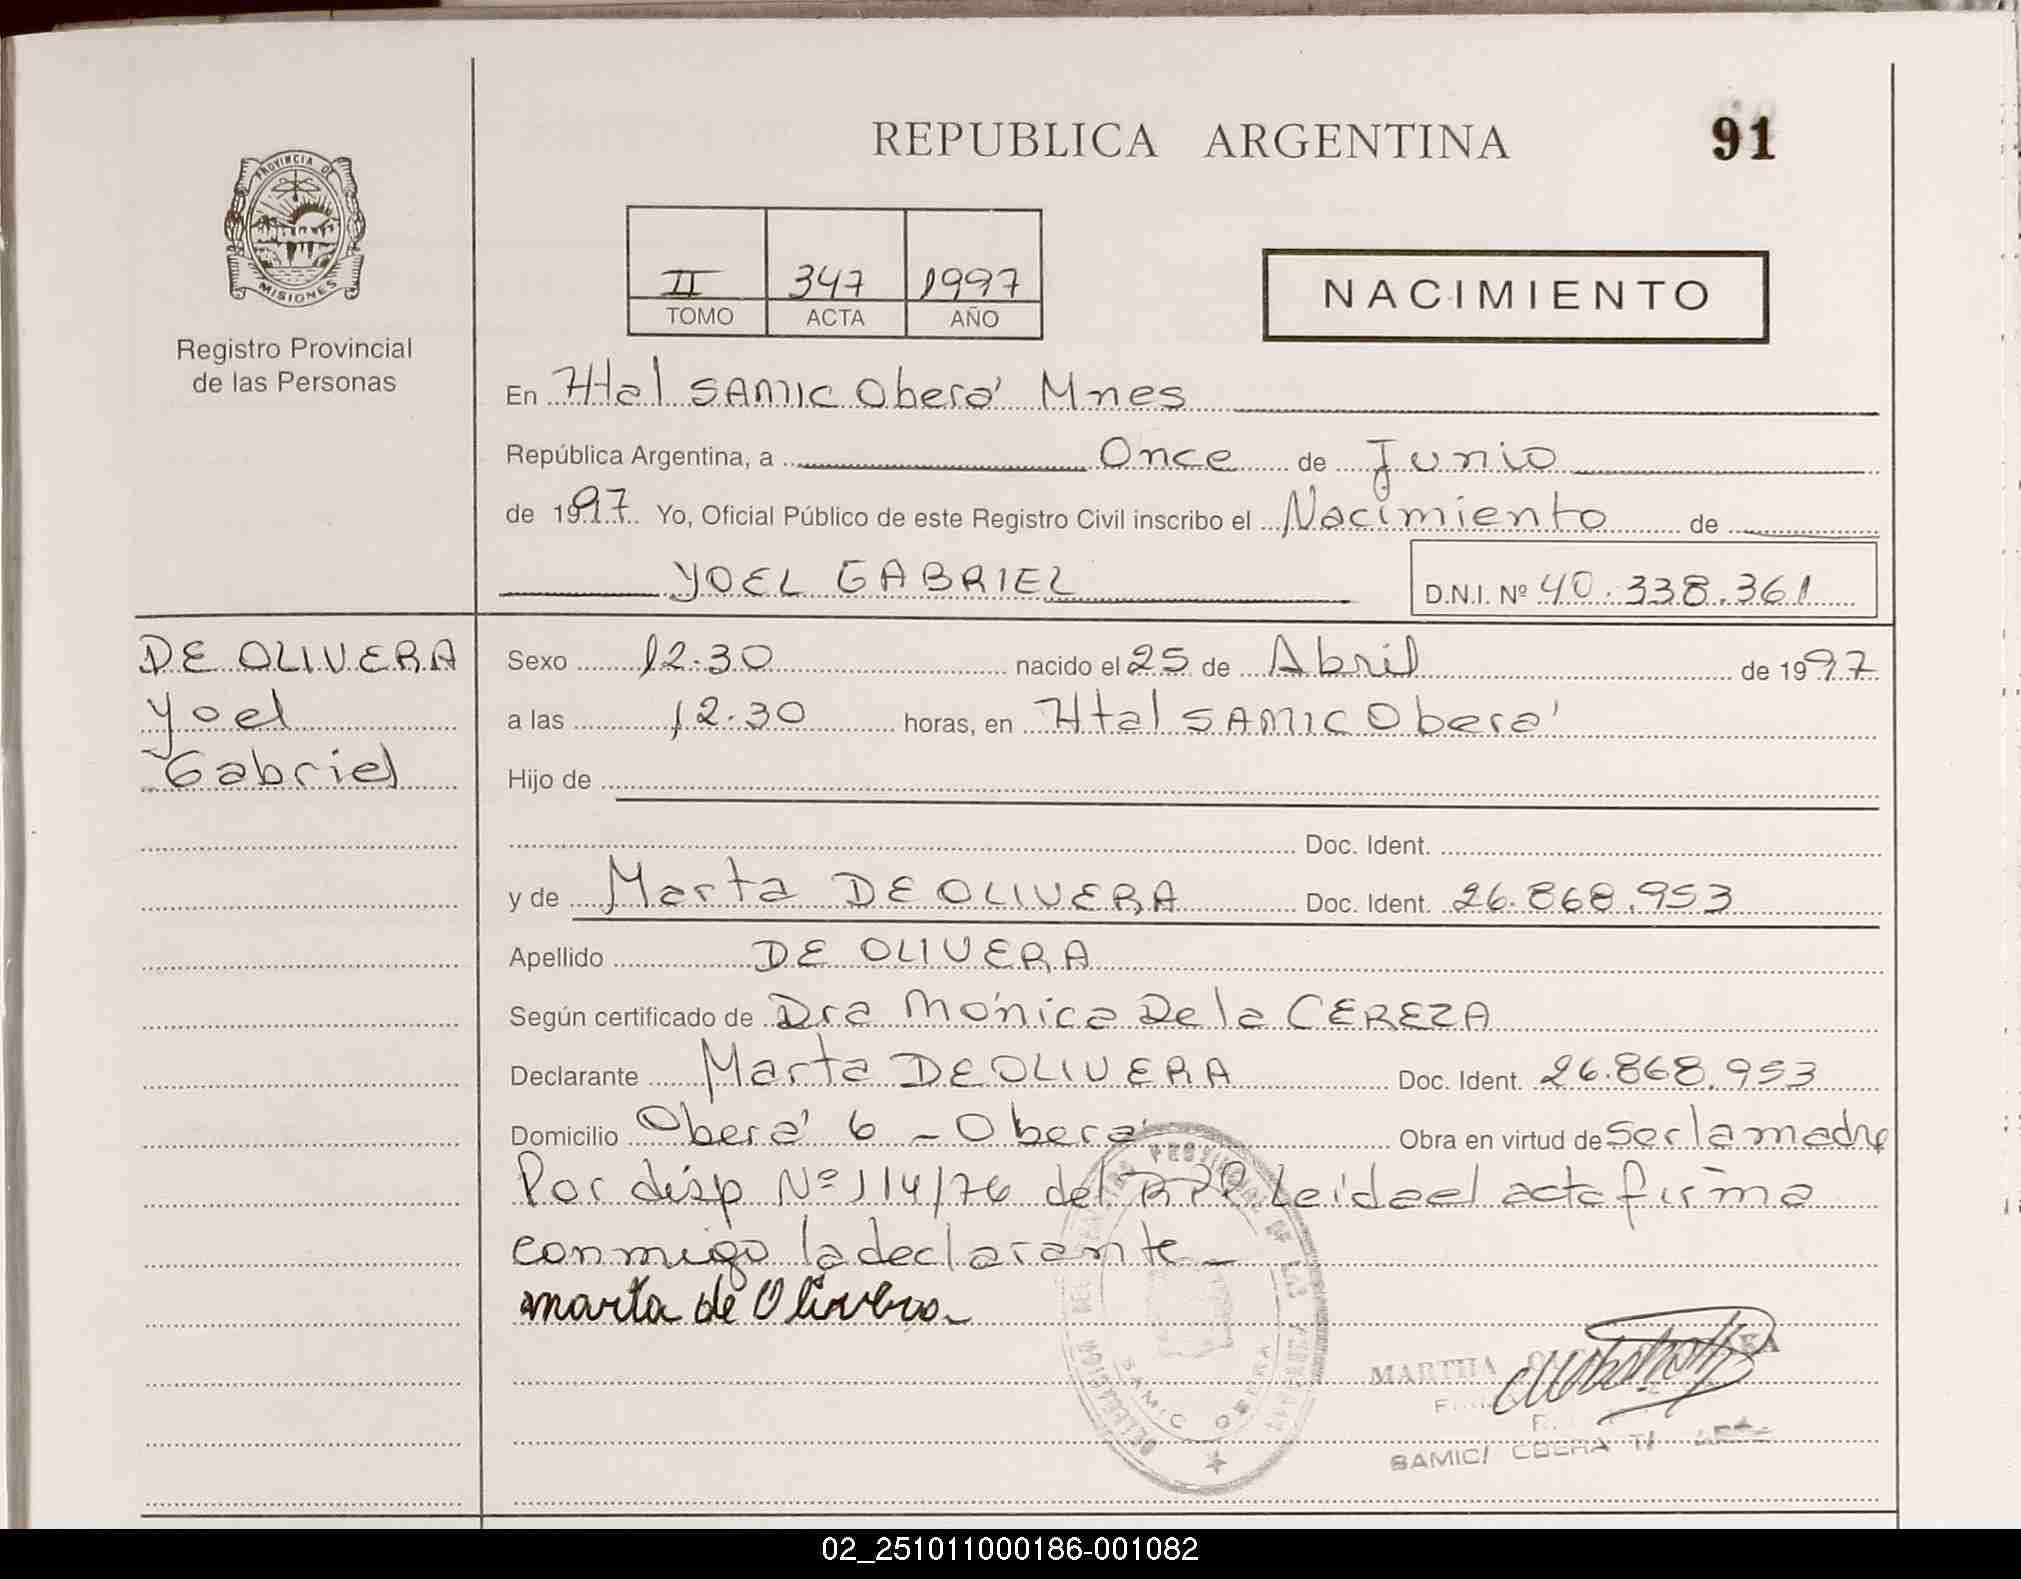 REPUBLICA ARGENTINA
91
PROVINCIA DE
MISIONES
Registro Provincial
de las Personas
II 347 1997
TOMO ACTA AÑO
NACIMIENTO
En Htal SAMIC Oberá Mnes
República Argentina, a Once de Junio
de 1997 Yo, Oficial Público de este Registro Civil inscribo el Nacimiento de
YOEL GABRIEL
D.N.I. Nº 40.338.361
DE OLIVERA
Yoel
Gabriel
Sexo 12.30 nacido el 25 de Abril de 1997
a las 12.30 horas, en Htal SAMIC Oberá
Hijo de
Doc. Ident.
y de Marta DE OLIVERA Doc. Ident. 26.868.953
Apellido DE OLIVERA
Según certificado de Dra Mónica De la CEREZA
Declarante Marta DE OLIVERA Doc. Ident. 26.868.953
Domicilio Oberá 6 - Oberá Obra en virtud de ser la madre
Por disp Nº 114/76 del RPP Leida el acta firma
conmigo la declarante -
marta de Olivera
DELEGACION DEL REGISTRO PROVINCIAL DE LAS PERSONAS
SAMIC OBERA
MARTHA
SAMIC/ OBERA
02_251011000186-001082